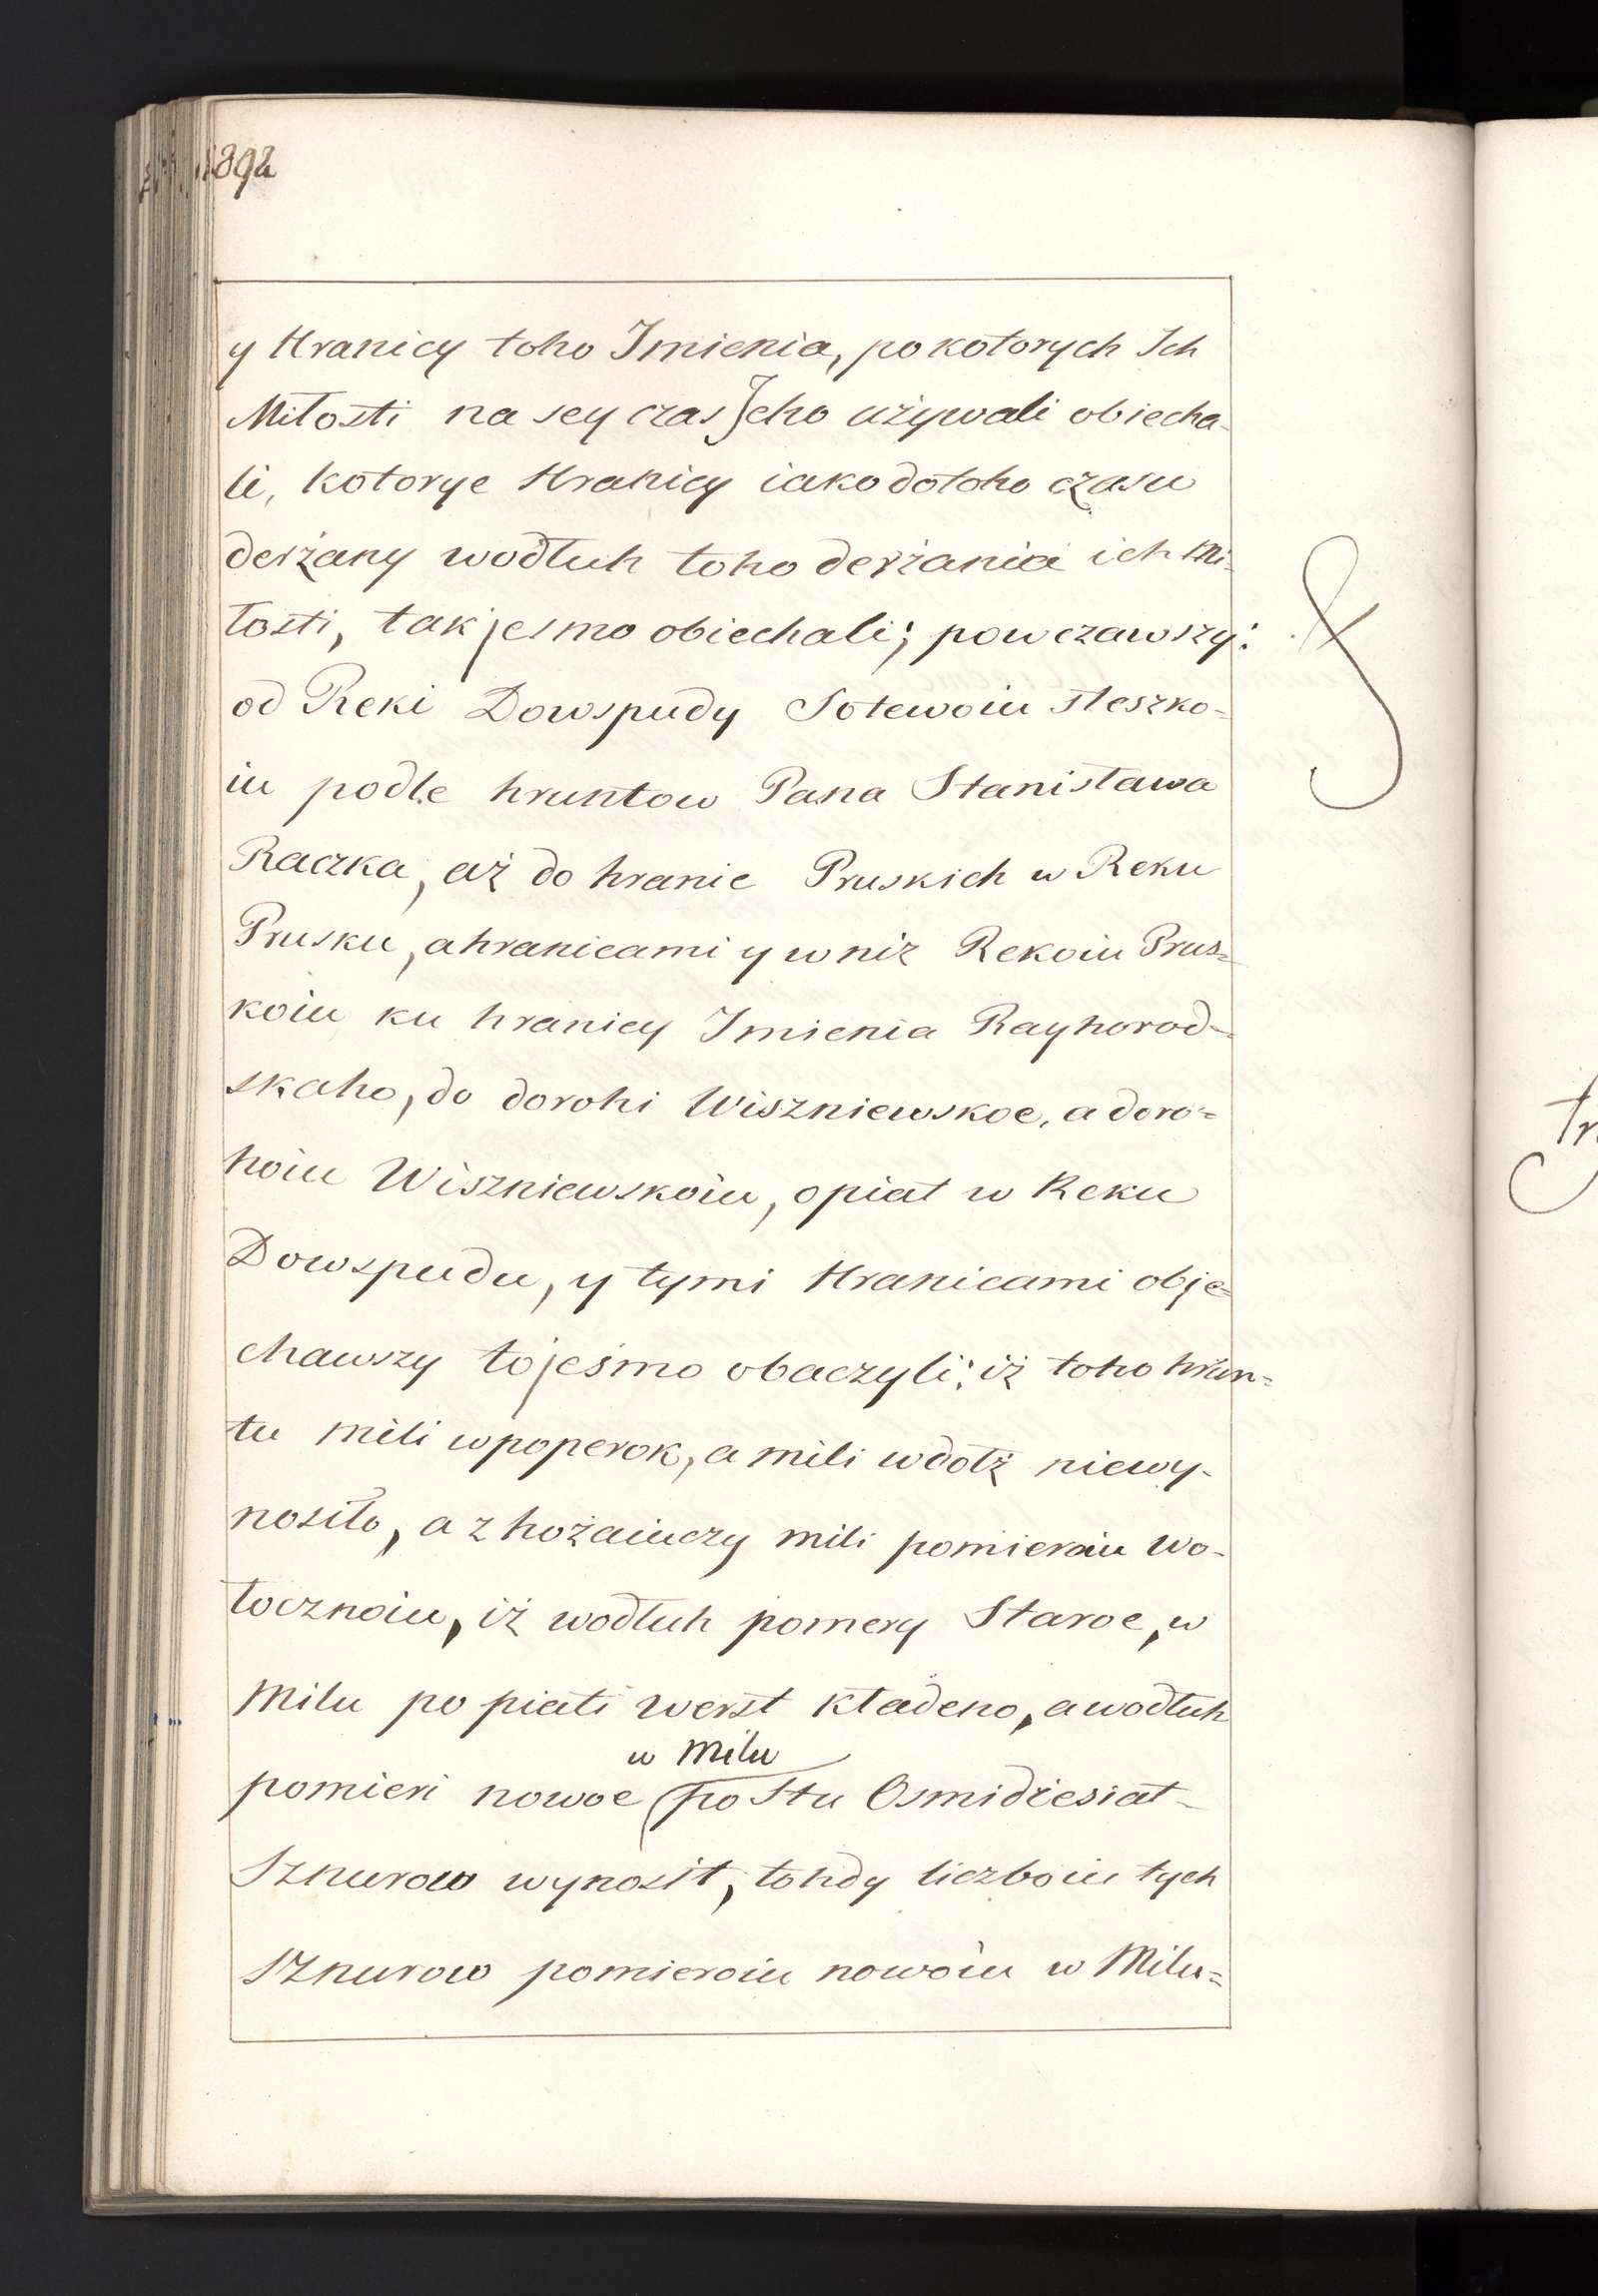 1892
y Hranicy toho Imienia, po kotorych Ich
Miłosti na sey czas Jeho używali obiecha-
li, kotorye Hranicy iako do toho czasu
derżany wodłuh toho derżania ich Mi-
łosti, tak jesmo obiechali; powczawszy:
od Reki Dowspudy Sotewoiu steszko-
iu podle hruntow Pana Stanisława
Raczka, aż do hranic Pruskich w Reku
Prusku, a hranicami y w niz Rekoiu Prus-
koiu ku hranicy Imienia Rayhorod-
skaho, do dorohi Wiszniewskoe, a doro-
hoiu Wiszniewskoiu, opiat w Reku
Dowspudu, y tymi Hranicami obje-
chawszy to jesmo obaczyli; iż toho hrun-
tu mili wpoperok, a mili wdołż niewy-
nosiło, a zhożaiuczy mili pomieroiu wo-
łocznoiu, iż wodłuh pomery Staroe, w
Milu po piati werst kładeno, a wodłuh
w Milu
pomieri nowoe po Stu Osmidiesiat
Sznurow wynosit, tohdy liczboiu tych
Sznurow pomieroiu nowoiu w Milu-